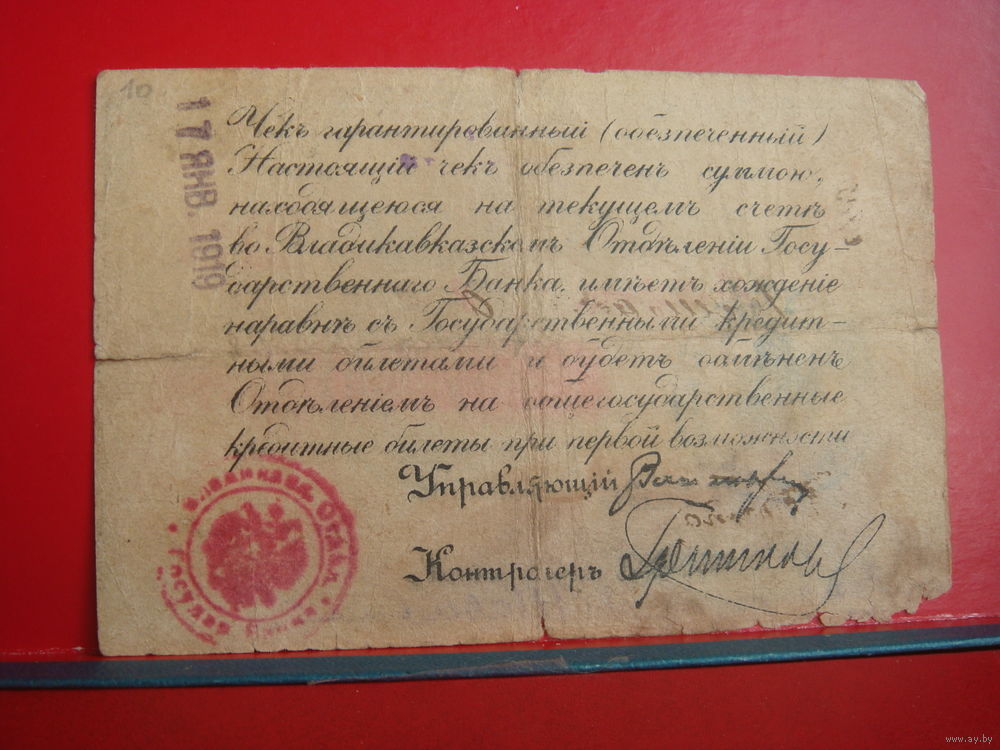 10
17 ЯНВ. 1919
Чекъ гарантированный (обезпеченный)
Настоящій чекъ обезпеченъ суммою,
находящеюся на текущемъ счетѣ
во Владикавказскомъ Отдѣленіи Госу-
дарственнаго Банка, имѣетъ хожденіе
наравнѣ съ Государственными кредит-
ными билетами и будетъ обмѣненъ
Отдѣленіемъ на общегосударственные
кредитные билеты при первой возможности
Управляющій
Контролеръ
www.ay.by